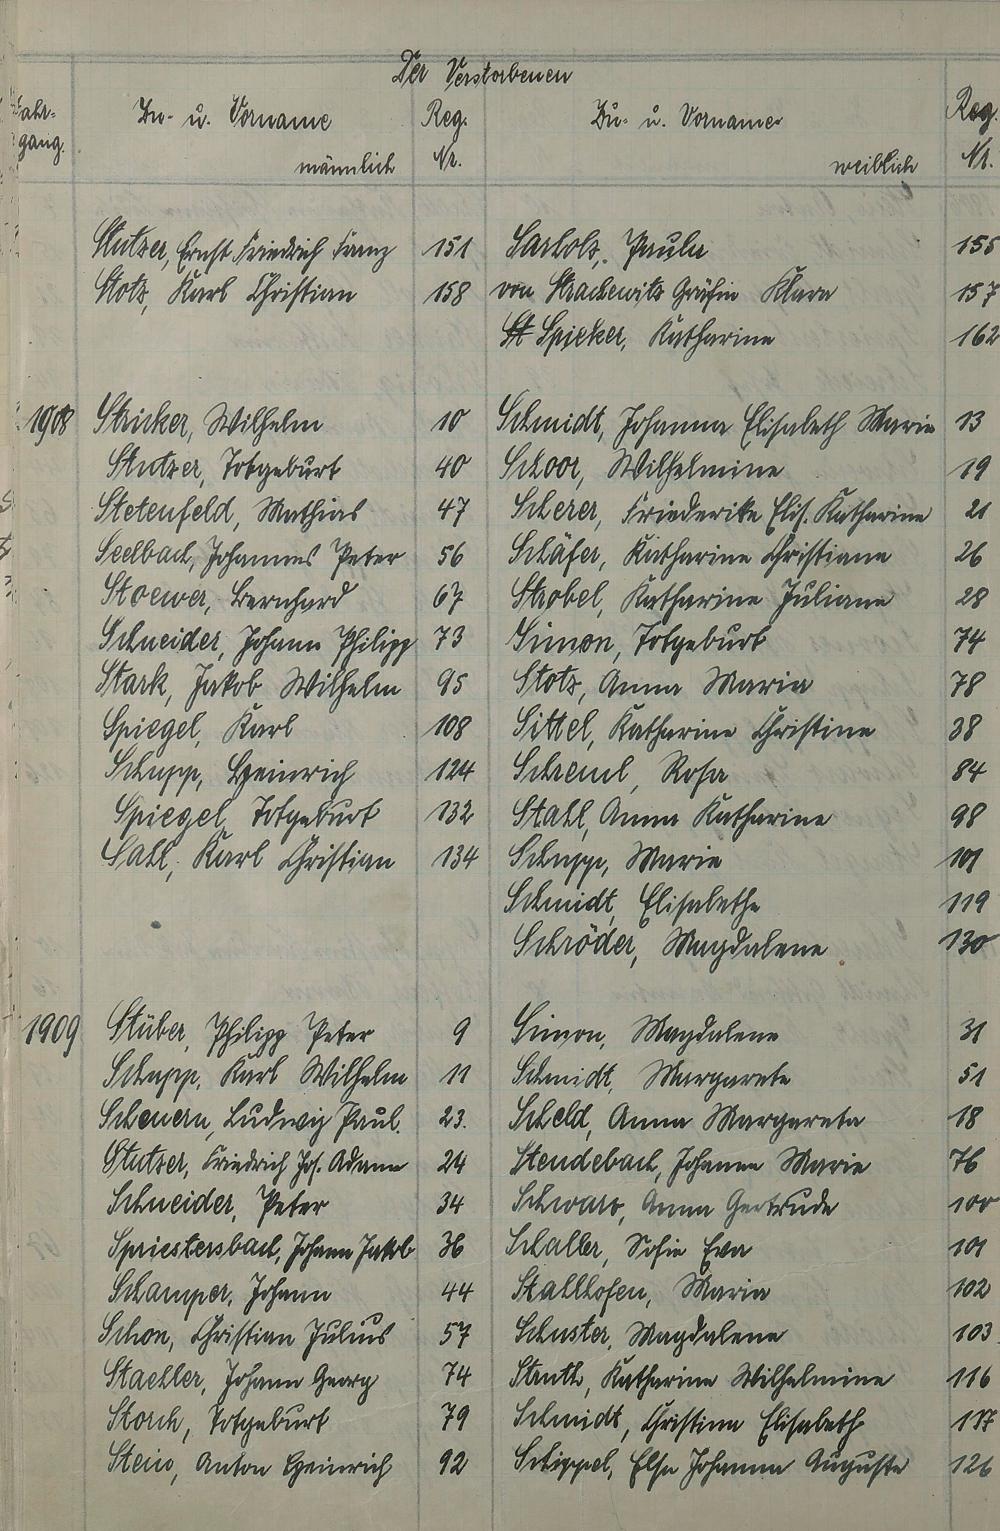 Der Verstorbenen
Jahr-
gang.
Zu- u. Vorname
männlich
Reg.
Nr.
Zu- u. Vorname
weiblich
Reg.
Nr.
Stutzer, Ernst Friedrich Franz 151 Sarholz, Paula 155
Stotz, Karl Christian 158 von Strachwitz Gräfin Klara 157
Spieker, Katharine 162
1908 Stricker, Wilhelm 10 Schmidt, Johanna Elisabeth Marie 13
Stutzer, Totgeburt 40 Schoor, Wilhelmine 19
Stetenfeld, Mathias 47 Scherer, Friederike Elis. Katharine 21
Seelbach, Johannes Peter 56 Schäfer, Katharine Christiane 26
Stoewer, Bernhard 67 Strobel, Katharine Juliane 28
Schneider, Johann Philipp 73 Simon, Totgeburt 74
Stark, Jakob Wilhelm 95 Stotz, Anna Maria 78
Spiegel, Karl 108 Sittel, Katharine Christine 38
Schupp, Heinrich 124 Schreml, Rosa 84
Spiegel, Totgeburt 132 Stahl, Anna Katharine 98
Sahl, Karl Christian 134 Schupp, Marie 101
Schmidt, Elisabethe 119
Schröder, Magdalene 130
1909 Stüber, Philipp Peter 9 Simon, Magdalene 31
Schupp, Karl Wilhelm 11 Schmidt, Margarete 51
Scheuern, Ludwig Paul. 23. Scheld, Anna Margareta 18
Stutzer, Friedrich Jos. Adam 24 Stendebach, Johanna Marie 76
Schneider, Peter 34 Schwarz, Anna Gertrude 100
Spriestersbach, Johann Jakob 36 Schaller, Sofie Eva 101
Schamper, Johann 44 Stahlhofen, Maria 102
Schon, Christian Julius 57 Schuster, Magdalena 103
Staehler, Johann Georg 74 Struth, Katharine Wilhelmine 116
Storch, Totgeburt 79 Schmidt, Christine Elisabeth 117
Stein, Anton Heinrich 92 Schippel, Else Johanna Auguste 126